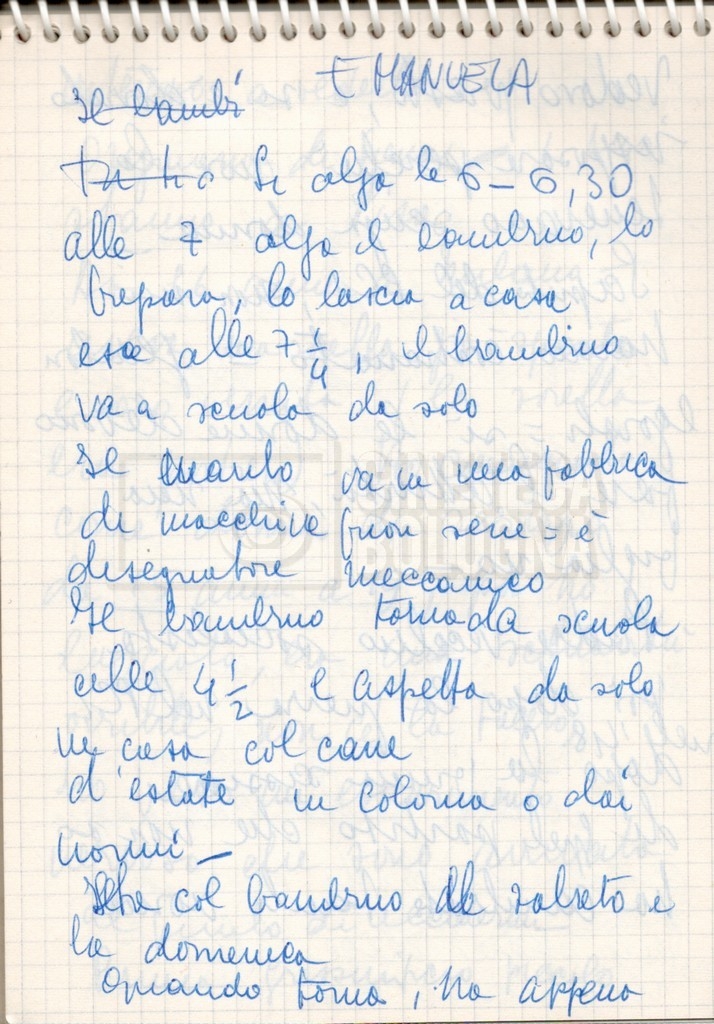 EMANUELA
Il bambi
Tutto Si alza le 6 – 6,30
alle 7 alza il bambino, lo
prepara, lo lascia a casa
esce alle 7 1/4, il bambino
va a scuola da solo
Il marito va in una fabbrica
di macchine fuori serie = è
disegnatore meccanico
Il bambino torna da scuola
alle 4 1/2 e aspetta da solo
in casa col cane
d'estate in colonia o dai
nonni –
Sta col bambino il sabato e
la domenica
Quando torna, ha appena